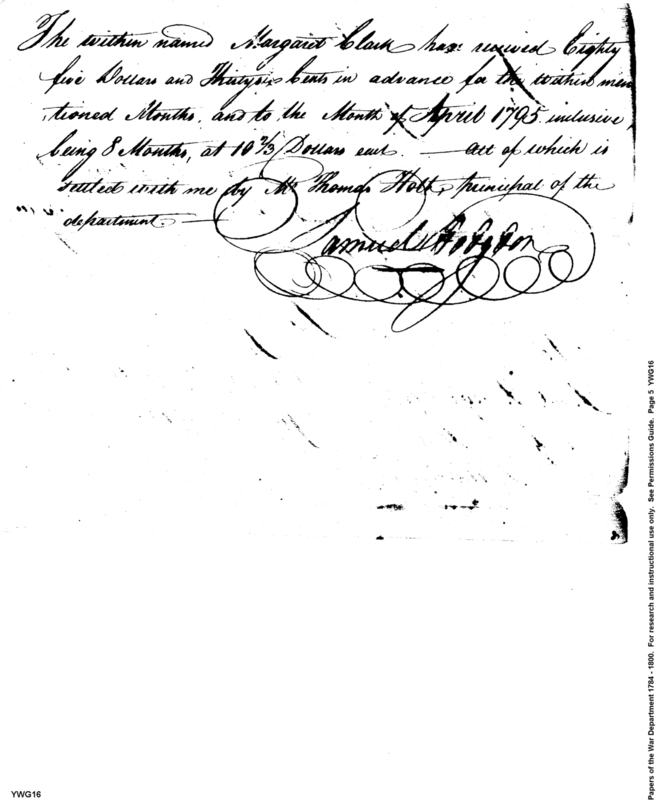 The within named Margaret Clark has received Eighty
five Dollars and Thirtysix Cents in advance for the within men
tioned Months, and to the Month of April 1795 inclusive,
being 8 Months, at 10 2/3 Dollars each. — all of which is
settled with me by Mr Thomas Holt, principal of the
department —
Samuel Hodgdon
Papers of the War Department 1784 - 1800. For research and instructional use only. See Permissions Guide. Page 5 YWG16
YWG16